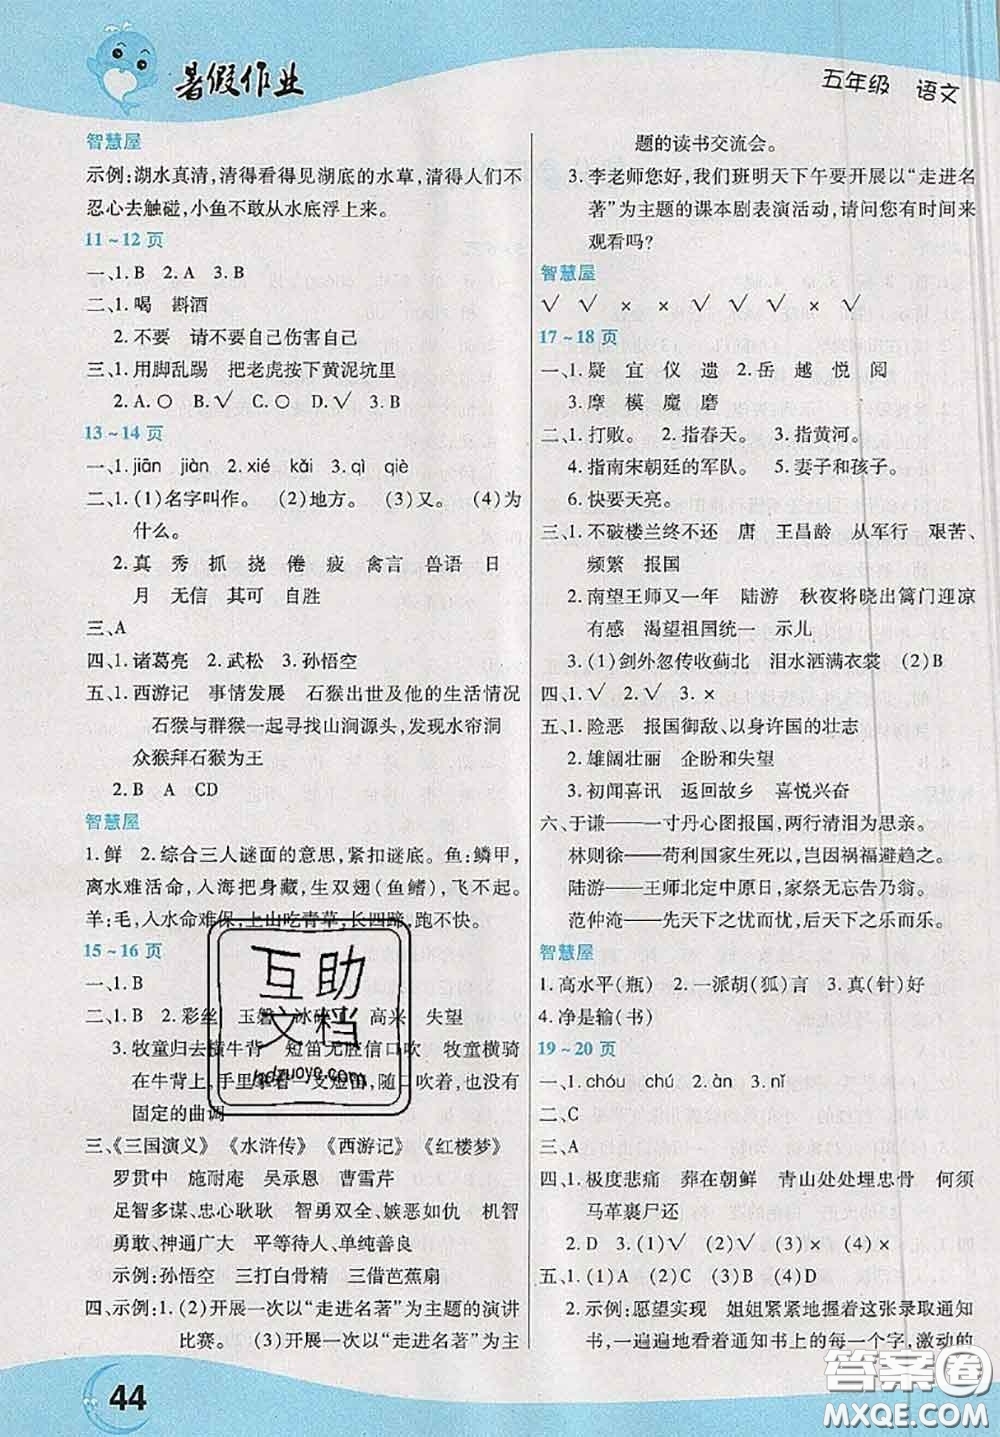 暑假作业
五年级 语文
智慧屋
示例:湖水真清,清得看得见湖底的水草,清得人们不
忍心去触碰,小鱼不敢从水底浮上来。
11~12页
一、1.B 2.A 3.B
二、1.喝 斟酒
2.不要 请不要自己伤害自己
三、1.用脚乱踢 把老虎按下黄泥坑里
2.A.○ B.√ C.○ D.√ 3.B
13~14页
一、1.jiān jiàn 2.xié kǎi 3.qì qiè
二、1.(1)名字叫作。 (2)地方。 (3)又。 (4)为
什么。
2.真 秀 抓 挠 倦 疲 禽言 兽语 日
月 无信 其可 自胜
三、A
四、1.诸葛亮 2.武松 3.孙悟空
五、1.西游记 事情发展 石猴出世及他的生活情况
石猴与群猴一起寻找山涧源头,发现水帘洞
众猴拜石猴为王
2.B A CD
智慧屋
1.鲜 2.综合三人谜面的意思,紧扣谜底。鱼:鳞甲,
离水难活命,入海把身藏,生双翅(鱼鳍),飞不起。
羊:毛,入水命难保,上山吃青草,长四蹄,跑不快。
15~16页
一、1.B
二、1.B 2.彩丝 玉磬 冰碎了 高兴 失望
3.牧童归去横牛背 短笛无腔信口吹 牧童横骑
在牛背上,手里拿着一支短笛,随口吹着,也没有
固定的曲调
三、《三国演义》 《水浒传》 《西游记》 《红楼梦》
罗贯中 施耐庵 吴承恩 曹雪芹
足智多谋、忠心耿耿 智勇双全、嫉恶如仇 机智
勇敢、神通广大 平等待人、单纯善良
示例:孙悟空 三打白骨精 三借芭蕉扇
四、示例:1.(2)开展一次以“走进名著”为主题的演讲
比赛。 (3)开展一次以“走进名著”为主
题的读书交流会。
3.李老师您好,我们班明天下午要开展以“走进名
著”为主题的课本剧表演活动,请问您有时间来
观看吗?
智慧屋
√ √ × × √ √ √ × √
17~18页
一、1.疑 宜 仪 遗 2.岳 越 悦 阅
3.摩 模 魔 磨
二、1.打败。 2.指春天。 3.指黄河。
4.指南宋朝廷的军队。 5.妻子和孩子。
6.快要天亮。
三、1.不破楼兰终不还 唐 王昌龄 从军行 艰苦、
频繁 报国
2.南望王师又一年 陆游 秋夜将晓出篱门迎凉
有感 渴望祖国统一 示儿
3.(1)剑外忽传收蓟北 泪水洒满衣裳 (2)B
四、1.√ 2.√ 3.×
五、1.险恶 报国御敌、以身许国的壮志
2.雄阔壮丽 企盼和失望
3.初闻喜讯 返回故乡 喜悦兴奋
六、于谦——一寸丹心图报国,两行清泪为思亲。
林则徐——苟利国家生死以,岂因祸福避趋之。
陆游——王师北定中原日,家祭无忘告乃翁。
范仲淹——先天下之忧而忧,后天下之乐而乐。
智慧屋
1.高水平(瓶) 2.一派胡(狐)言 3.真(针)好
4.净是输(书)
19~20页
一、1.chóu chú 2.àn 3.nǐ
二、C
三、A
四、1.极度悲痛 葬在朝鲜 青山处处埋忠骨 何须
马革裹尸还
2.D 3.(1)√ (2)√ (3)× (4)×
五、1.(1)A (2)C (3)B (4)D
2.示例:愿望实现 姐姐紧紧地握着这张录取通知
书,一遍遍地看着通知书上的每一个字,激动的
44
互助
文档
hdzuoye.com
答案圈
MXQE.COM